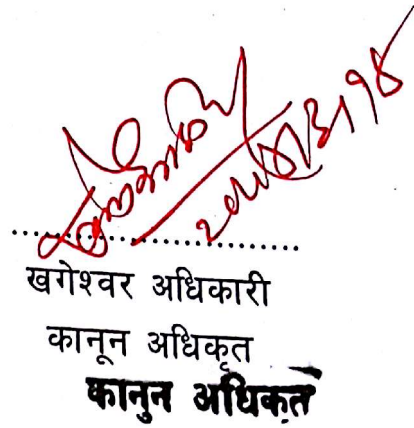 खगेश्वर अधिकारी
कानून अधिकृत
कानुन अधिकृत